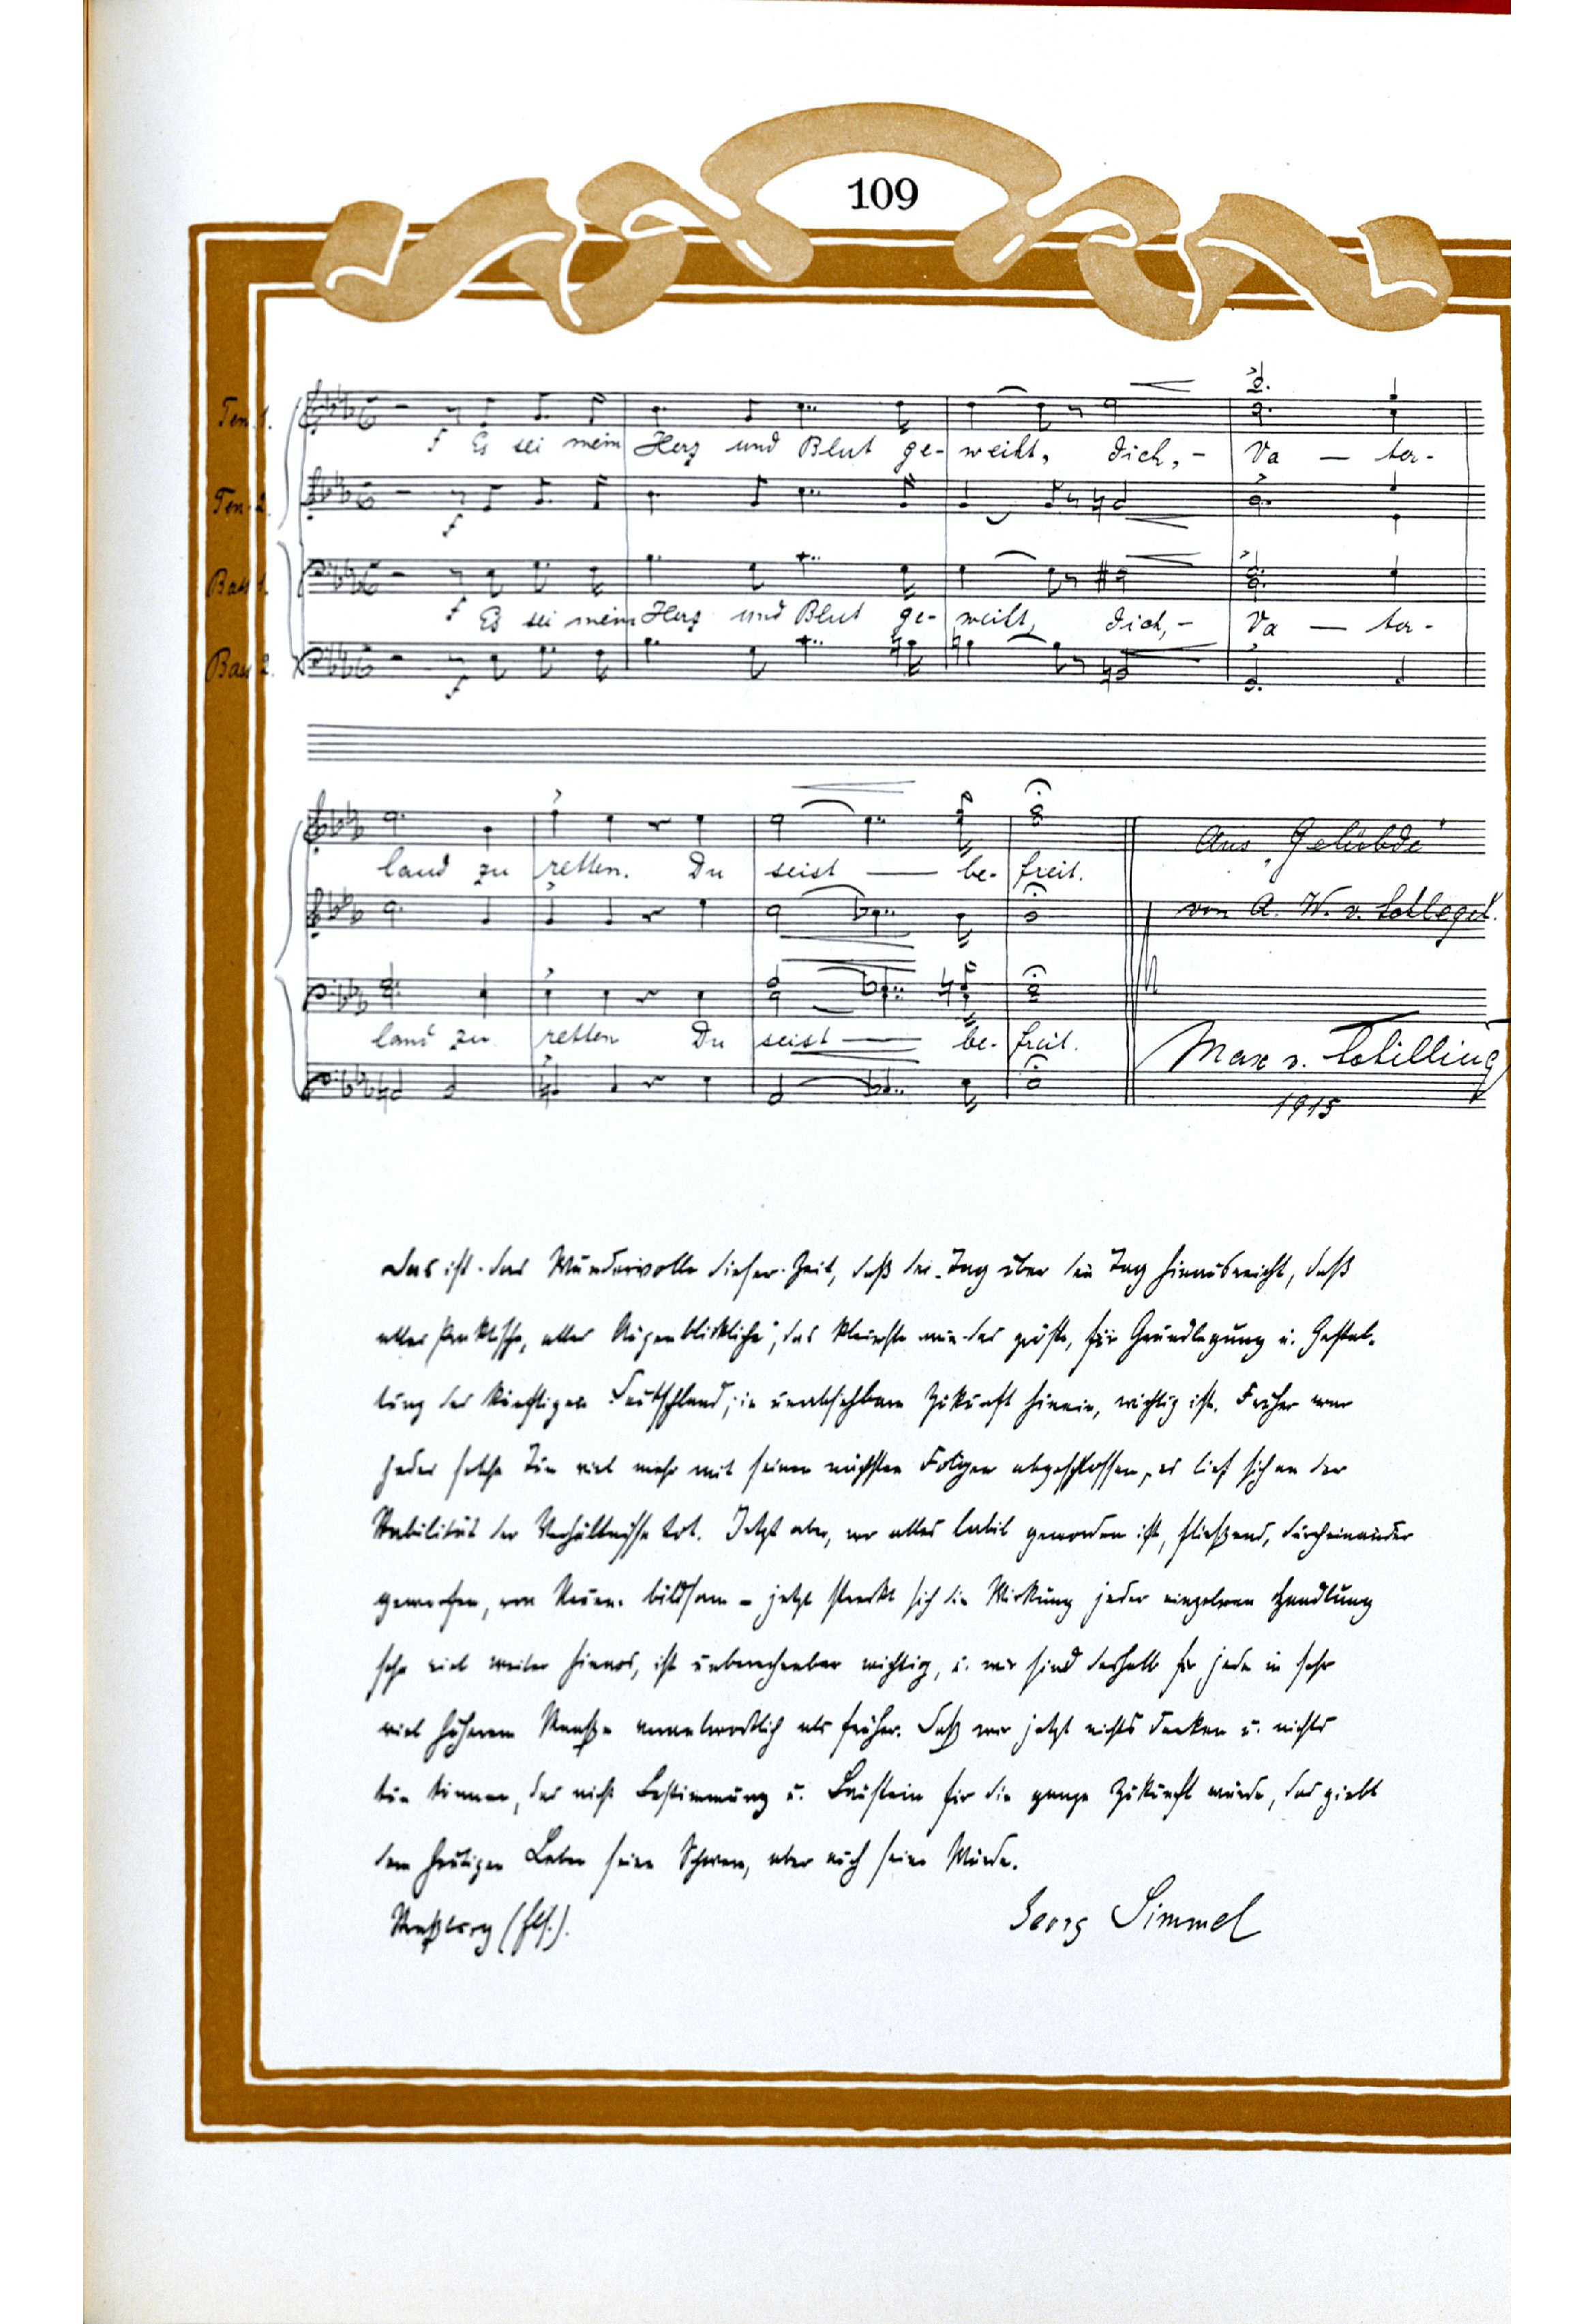 109
Ten. 1.
f Es sei mein Herz und Blut ge- weiht, dich, - Va — ter-
Ten. 2.
f
Bass 1.
f Es sei mein Herz und Blut ge- weiht, dich, - Va — ter-
Bass 2.
f
land zu retten. Du seist — be- freit.
Aus „Gelübde"
von A. W. v. Schlegel.
land zu retten Du seist — be- freit.
Max v. Schillings
1915
Das ist das Wundervolle dieser Zeit, daß der Tag über den Tag hinausreicht, daß
alles Praktische, alles Augenblickliche, das kleinste wie das größte, für Grundlegung u. Gestal-
tung des künftigen Deutschland, in unabsehbare Zukunft hinein, wichtig ist. Früher war
jedes solche Tun viel mehr mit seinen nächsten Folgen abgeschlossen, es lief sich an der
Stabilität der Verhältnisse tot. Jetzt aber, wo alles labil geworden ist, fließend, durcheinander
geworfen, von Neuem bildsam – jetzt streckt sich die Wirkung jeder einzelnen Handlung
sehr viel weiter hinaus, ist unberechenbar wichtig, u. wir sind deshalb für jede in sehr
viel höherem Maaße verantwortlich als früher. Daß wir jetzt nichts denken u. nichts
tun können, das nicht Bestimmung u. Baustein für die ganze Zukunft würde, das giebt
dem heutigen Leben seine Schwere, aber auch seine Würde.
Straßburg (Els.).
Georg Simmel